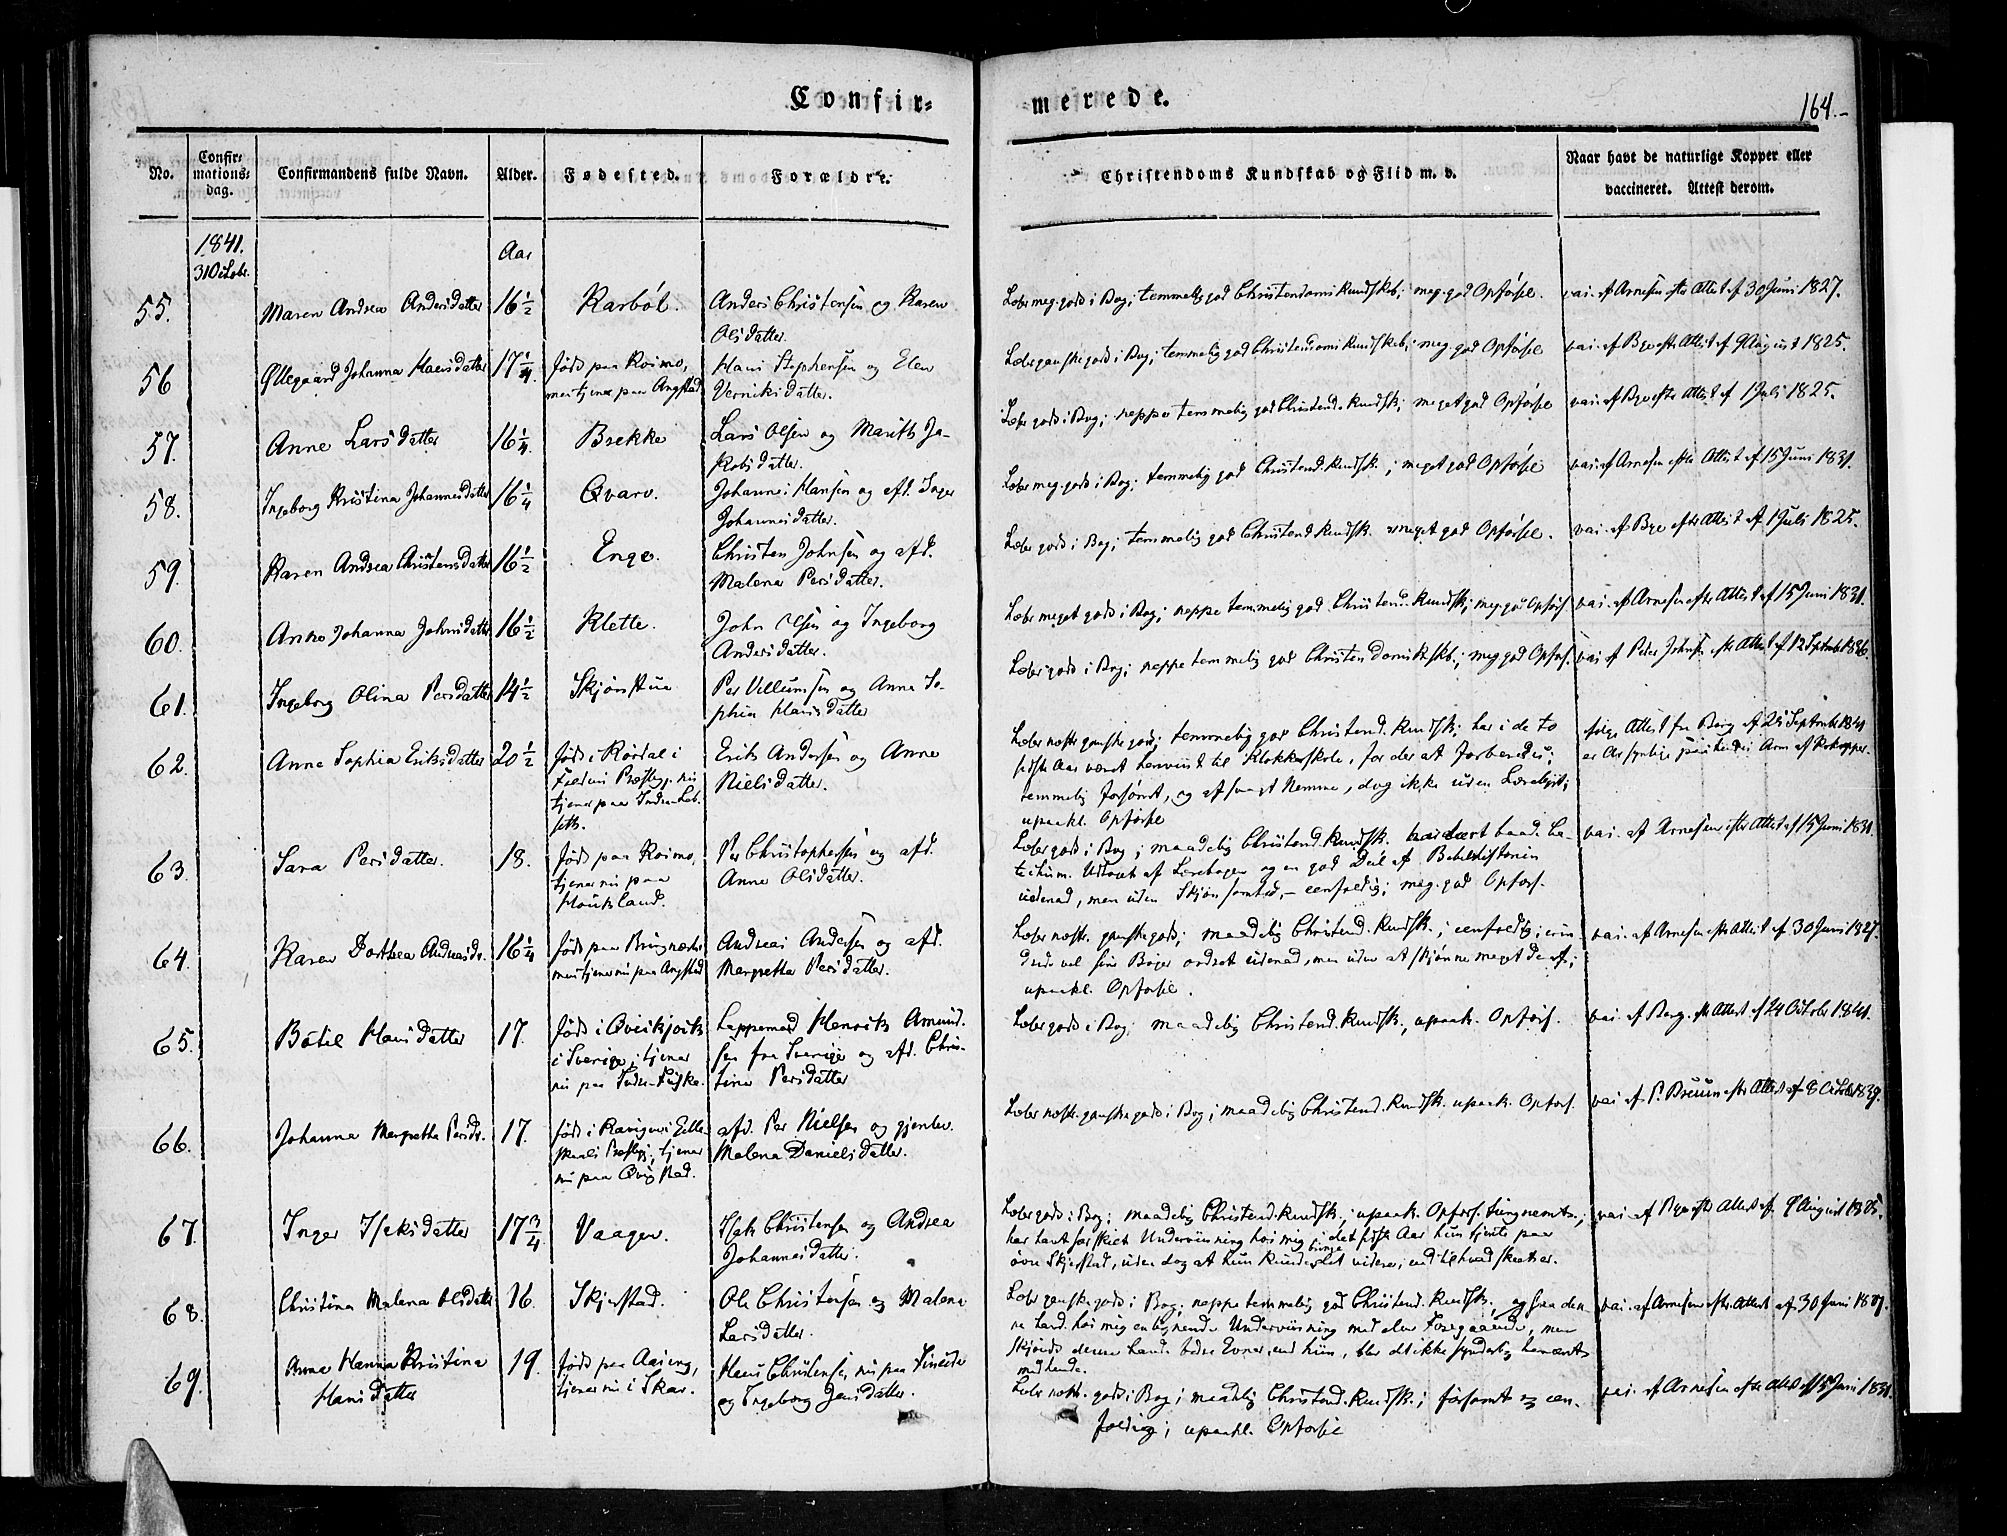 Confir=
merede.
164.-
No.
Confir=
mations=
dag.
Confirmandens fulde Navn.
Alder.
Fødested.
Forældre.
Christendoms Kundskab og Flid m. v.
Naar havt de naturlige Kopper eller
vaccineret. Attest derom.
1841.
31 Octobr.
Aar
55.
Maren Andrea Andersdatter
16 1/2
Karbøl.
Anders Christensen og Karen
Olsdatter.
Læser meg. godt i Bog; temmelig god Christendomskundskab; meg. god Opførsel.
vac. af Arnesen efter Attest af 30 Juni 1827.
56
Øllegaard Johanna Hansdatter
17 1/4.
født paa Roimo,
men tjener paa Angstad
Hans Stephensen og Elen
Verniksdatter.
Læser ganske godt i Bog; temmelig god Christendomskundskab; meg. god Opførsel
vac. af Bye efter Attest af 9 August 1825.
57.
Anne Larsdatter
16 1/4.
Brekke
Lars Olsen og Marith Ja-
kobsdatter.
Læser godt i Bog; neppe temmelig god Christend. kundsk; meget god Opførsel
vac. af Bye efter Attest af 1 Juli 1825.
58.
Ingeborg Kristina Johannesdatter
16 1/4
Qvarv.
Johannes Hansen og afd. Inger
Johannesdatter.
Læser meg. godt i Bog; temmelig god Christend. kundsk.; meget god Opførsel
vac. af Arnesen efter Attest af 15 Juni 1831.
59.
Karen Andrea Christensdatter
16 1/2
Enge.
Christen Johnsen og afd.
Malena Persdatter.
Læser godt i Bog; temmelig god Christend. kundsk. meget god Opførsel.
vac. af Bye efter Attest af 1 Juli 1825.
60.
Anne Johanna Johnsdatter
16 1/2
Klette.
John Olsen og Ingeborg
Andersdatter.
Læser meget godt i Bog; neppe temmelig god Christend. kundsk; meg. god Opførs.
vac. af Arnesen efter Attest af 15 Juni 1831.
61.
Ingeborg Olina Persdatter
14 1/2
Skjønstue
Per Villumsen og Anna So-
phia Hansdatter
Læser godt i Bog; neppe temmelig god Christendomskskb.; meg god Opførs.
vac af Peder Johns. efter Attest af 12 Septembr 1836.
62.
Anne Sophia Eriksdatter
20 1/2
født i Rørdal i
Præstegj. nu
tjener paa Indre-Leb-
seth.
Erik Andersen og Anne
Nielsdatter.
Læser noksk. ganske godt; temmelig god Christend. kundsk; har i de to
sidste Aar været henviist til Klokkerskole, for der at forberedes;
temmelig forsømt, og af svagt Nemme, dog ikke uden Lærelyst;
upaakl. Opførsel
ifølge Attest fra Berg af 25 Septembr 1841
er Ar synlige paa hendes Arm af Kokopper.
63.
Sara Persdatter.
18.
født paa Roimo,
tjener nu paa
Hauksland.
Per Christophersen og afd.
Anne Olsdatter.
Læser godt i Bog; maadelig Christend. kundsk. har lært baade Ca-
techism. Udtoget af Lærebogen og en god Deel af Bibelhistorien
udenad, men uden Skjønsomhed,- eenfoldig; meg. god Opførs.
vac. af Arnesen efter Attest af 15 Juni 1831.
64.
Karen Dorthea Andreasdr.
16 1/4
født paa
men tjener nu paa Angstad
Andreas Andersen og afd.
Margretha Persdatter.
Læser noksk. ganske godt; maadelig Christend. kundsk.; eenfoldig;
vel sine Bøger ordret udenad, men uden at skjønne meget deraf;
upaakl. Opførsel.
vac. af Arnesen efter Attest af 30 Juni 1827.
65.
Bótil Hansdatter
17.
født i Qvikjok
i Sverige; tjener
nu paa Indre-
Lappemand Henrik Amund-
sen fra Sverige og afd. Chris-
tina Persdatter
Læser godt i Bog; maadelig Christend. kundsk., upaak. Opførs.
vac. af Berg. eft. Attest af 24 October 1841.
66.
Johanna Margretha Persdr.
17.
født i
Præstegj., tjener
nu paa Qvigstad.
afd. Per Nielsen og gjenlev.
Malena Danielsdatter.
Læser noksk. ganske godt i Bog; maadelig Christend. kundsk. upaak. Opførs.
vac af P. Bruun efter Attest af 8 Octob. 1839.
67.
Inger Isaksdatter
17 3/4
Vaagen.
Isak Christensen og Andrea
Johannesdatter.
Læser godt i Bog; maadelig Christend. kundsk.; upaak. Opførs. tungnemm.;
har havt særskilt Underviisning hos mig i det sidste Aar hun tjente paa
øvre Skjerstad, uden dog at hun kunde bringe det videre, end til hvad skeet er.
vac. af Bye efter Attest af 9 August 1825.
68.
Christina Malena Olsdatter
16.
Skjerstad.
Ole Christensen og Malena
Larsdatter.
Læser ganske godt i Bog; neppe temmelig god Christend. kundsk., og har den-
ne havt hos mig en lignende Underviisning med den Foregaaende, men
skjønt denne havde bedre Evner, end hiin, blev det ikke synderlig
med hende.
vac. af Arnesen efter Attest af 30 Juni 1827.
69.
Anna Hanna Kristina
Hansdatter
19.
født paa Aaseng,
tjener nu i Skar.
Hans Christensen, nu paa
og Ingeborg Jensdatter.
Læser noksk. godt i Bog; maadelig Christend. kundsk.; forsømt og een-
foldig; upaakl. Opførsel
vac. af Arnesen efter Attest af 15 Juni 1831.